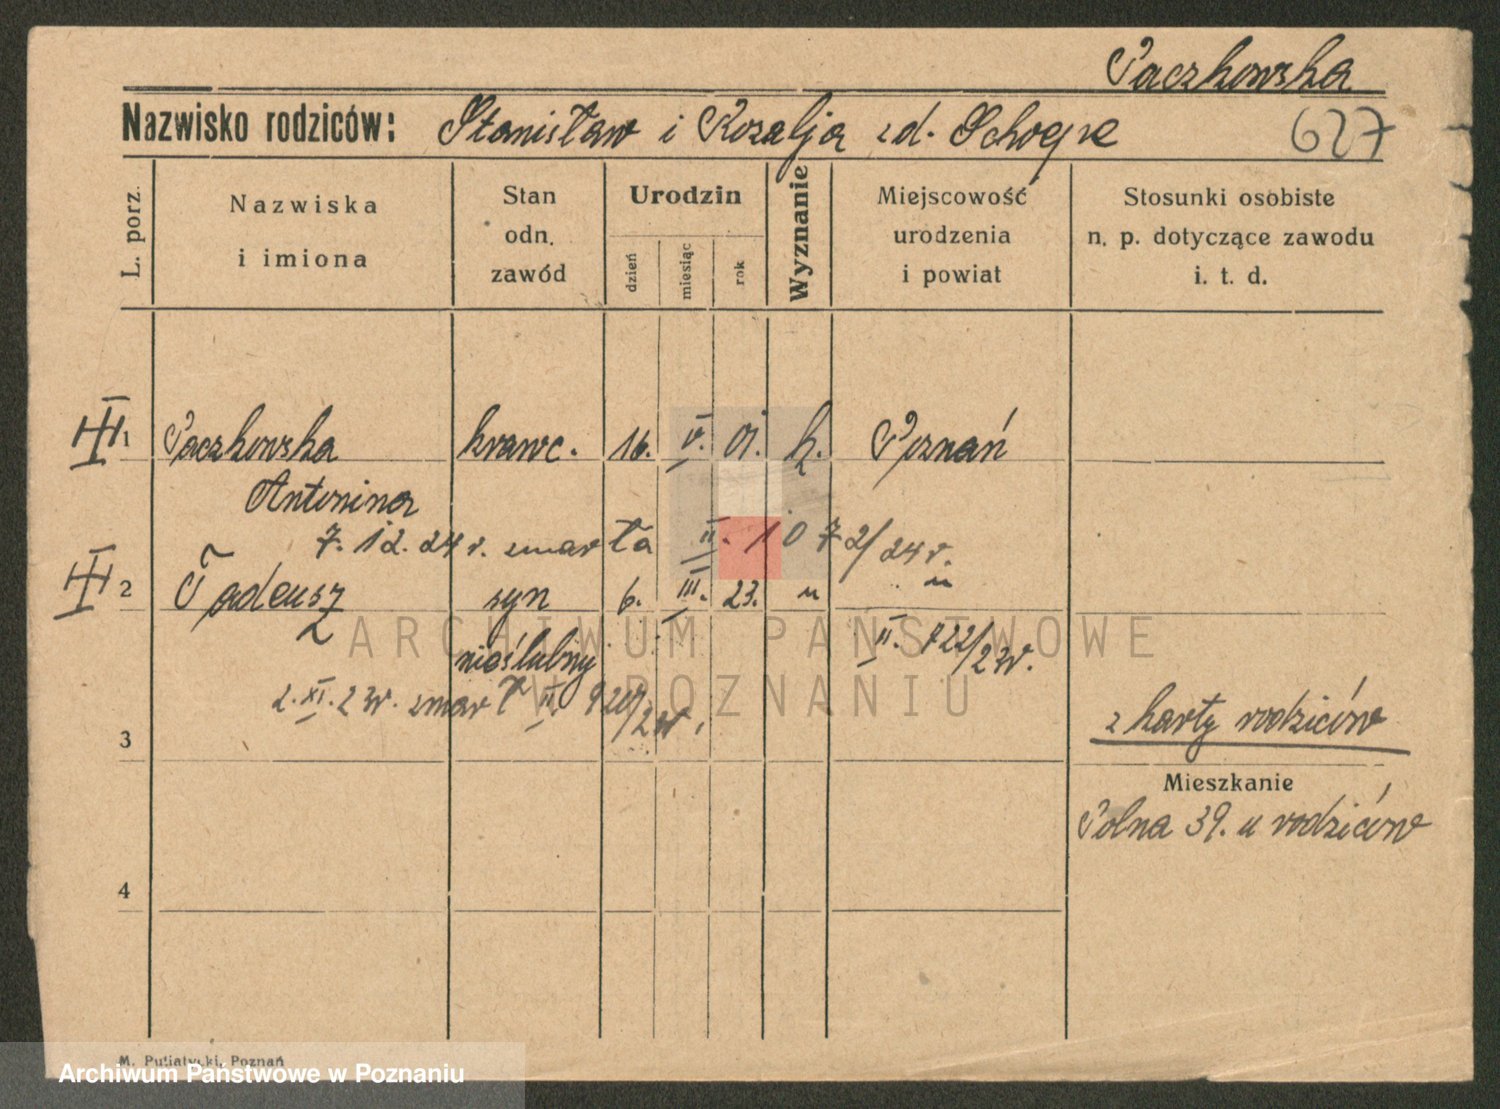 Paczkowska
Nazwisko rodziców: Stanisław i Rozalja zd.
627
L. porz.
Nazwiska
i imiona
Stan
odn.
zawód
Urodzin
dzień
miesiąc
rok
Wyznanie
Miejscowość
urodzenia
i powiat
Stosunki osobiste
n. p. dotyczące zawodu
i. t. d.
III 1 Paczkowska krawc. 16. V. 01. k. Poznań
Antonina
7. 12. 24 r. zmarła II. 1072/24 r.
III 2 Tadeusz syn 6. III. 23. " "
nieślubny II. 722/23r.
2. XI. 23r. zmarł II.
3
z karty rodziców
Mieszkanie
Polna 39. u rodziców
4
M. Putiatycki, Poznań
ARCHIWUM PAŃSTWOWE
W POZNANIU
Archiwum Państwowe w Poznaniu